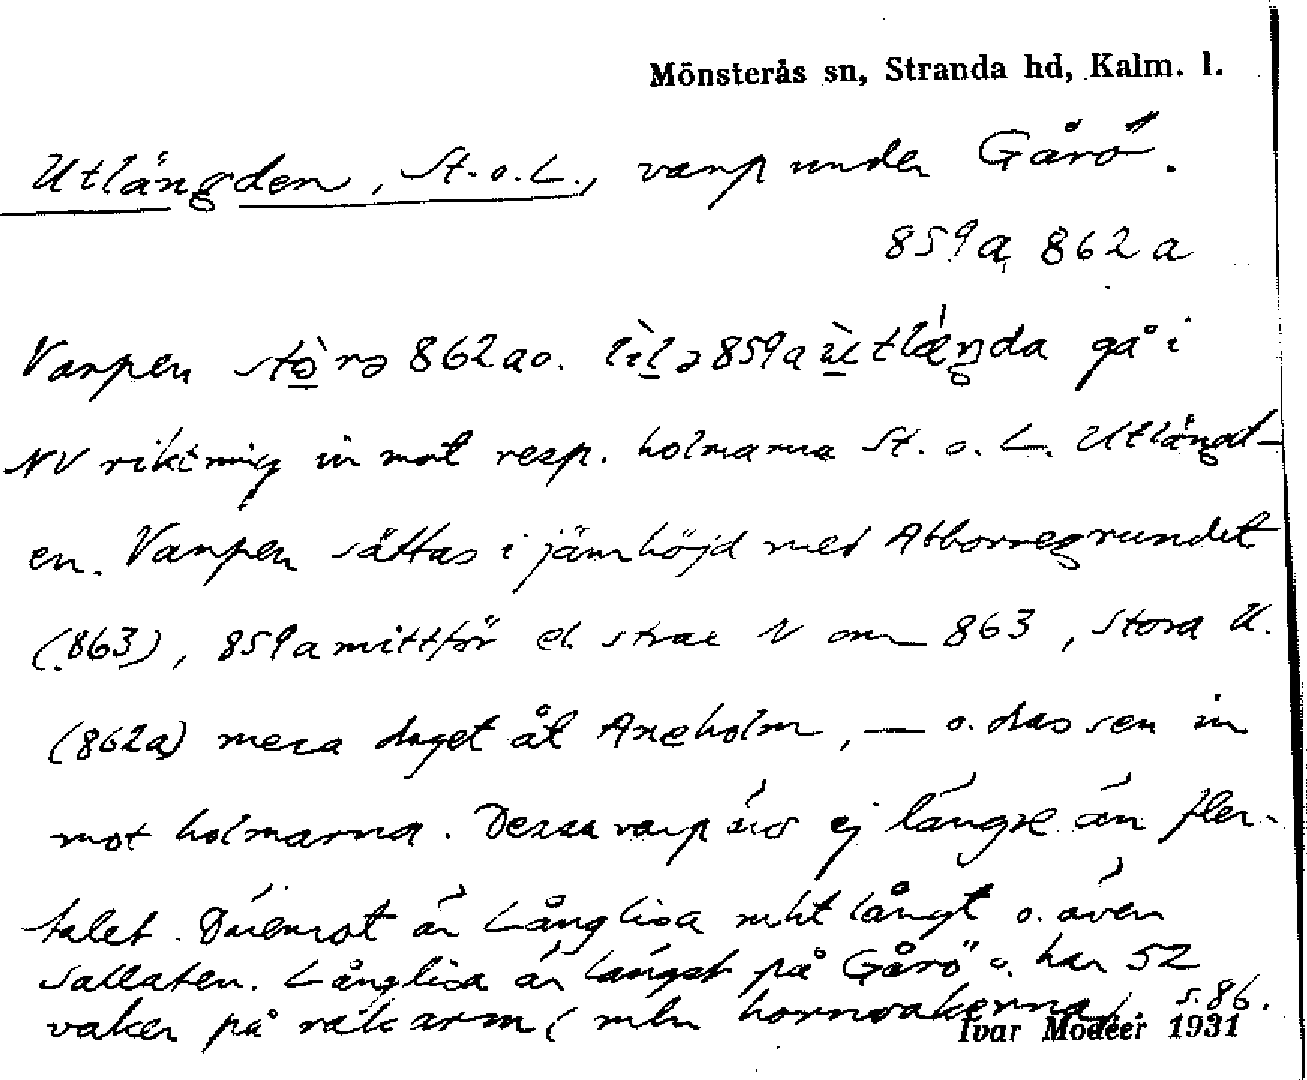 Mönsterås sn, Stranda hd, Kalm. l.
Utlängden, St. o. L., varp under Gårö.
859a, 862a
Varpen stò̱rə 862a o. lìḻə 859a ù̱tlæŋda gå i
NV riktning in mot resp. holmarna St. o. L. Utlängd-
en. Varpen sättas i jämhöjd med Abborregrundet
(863), 859a mittför el. strax N om 863, Stora U.
(862a) mera draget åt Axeholm, — o. dras sen in
mot holmarna. Dessa varp äro ej längre än fler-
talet. Däremot är Långlisa mkt långt o. även
Sallaten. Långlisa är längst på Gårö o. har 52
vaker på räkarm (mln hornvakerna). s. 86.
Ivar Modéer 1931